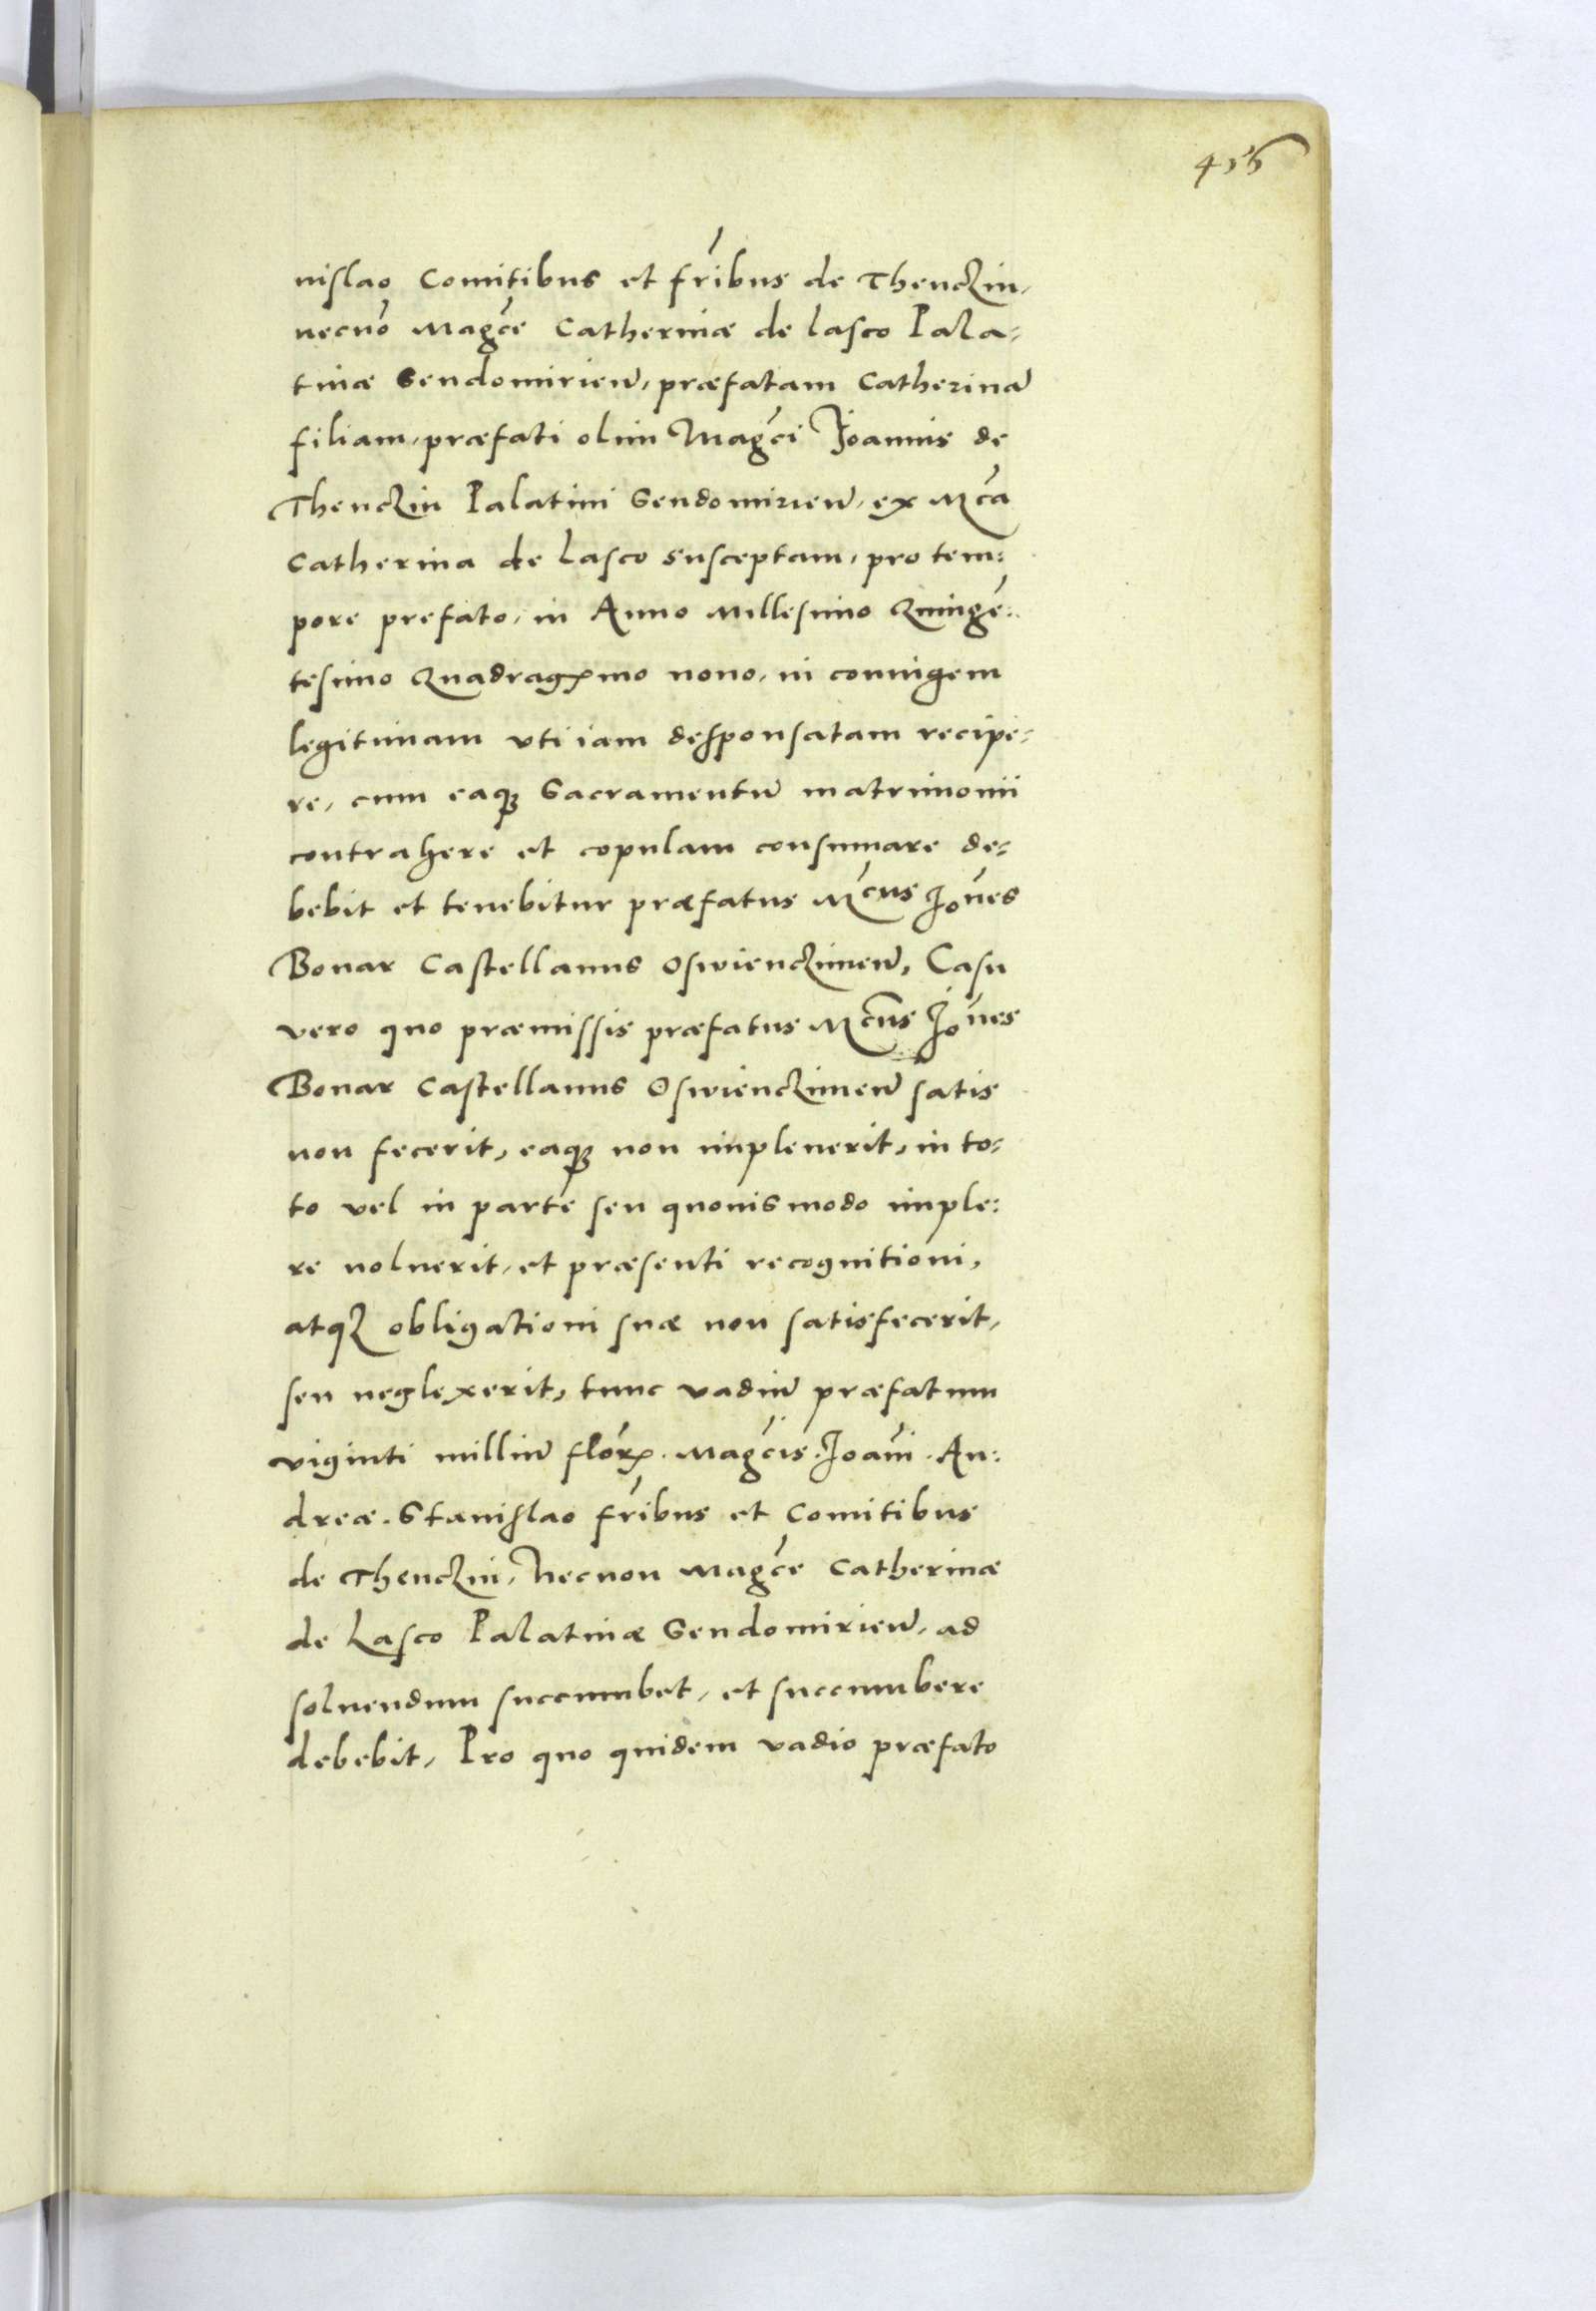 456
nislao Comitibus et fr̃ibus de Thenczin,
necnõ Magc̃e Catherinæ de lasco Pala-
tinæ Sendomirieñ, præfatam Catherinã
filiam, præfati olim Magc̃i Joannis de
Thenczin Palatini Sendomirieñ, ex Mc̃a
Catherina de Lasco susceptam, pro tem:
pore prefato, in Anno Millesimo Quingẽ:
tesimo Quadragxmo nono, in coniugem
legitimam vti iam desponsatam recipe-
re, cum eaqꝫ Sacramentũ matrimonii
contrahere et copulam consumare de-
bebit et tenebitur præfatus Mc̃us Joñes
Bonar Castellanus Oswiencziméñ, Casu
vero quo præmissis præfatus Mc̃us Joñes
Bonar Castellanus Oswienczimeñ satis
non fecerit, eaqꝫ non impleuerit, in to-
to vel in parte seu quouismodo imple:
re noluerit, et præsenti recognitioni,
atqꝫ obligationi suæ non satisfecerit,
seu neglexerit, tunc vadiũ præfatum
viginti milliũ florꝝ. Magc̃is. Joañi. An:
dreæ. Stanislao fr̃ibus et Comitibus
de Thenczin, Necnon Magc̃e Catherinæ
de Lasco Palatinæ Sendomirieñ, ad
soluendum succumbet, et succumbere
debebit, Pro quo quidem vadio præfato